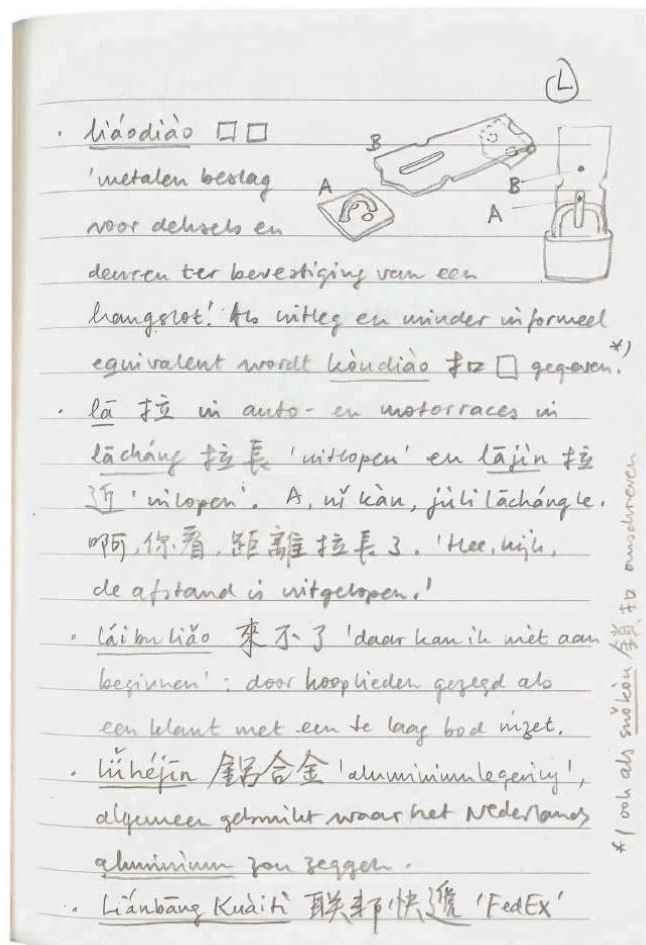 L
· liáodiào □□
'metalen beslag
voor deksels en
deuren ter bevestiging van een
hangslot'. Als uitleg en minder informeel
equivalent wordt kòudiào 扣□ gegeven.*)
· lā 拉 in auto- en motorraces in
lācháng 拉長 'uitlopen' en lājìn 拉
近 'inlopen'. A, nǐ kàn, jùlí lāchángle.
啊,你看,距離拉長了. 'Hee, kijk,
de afstand is uitgelopen.'
· láibuliǎo 來不了 'daar kan ik niet aan
beginnen': door kooplieden gezegd als
een klant met een te laag bod inzet.
· lǚhéjīn 鋁合金 'aluminiumlegering',
algemeen gebruikt waar het Nederlands
aluminium zou zeggen.
· Liánbāng Kuàidì 联邦快遞 'FedEx'
B
A
B
A
*) ook als suǒkòu 鎖扣 omschreven